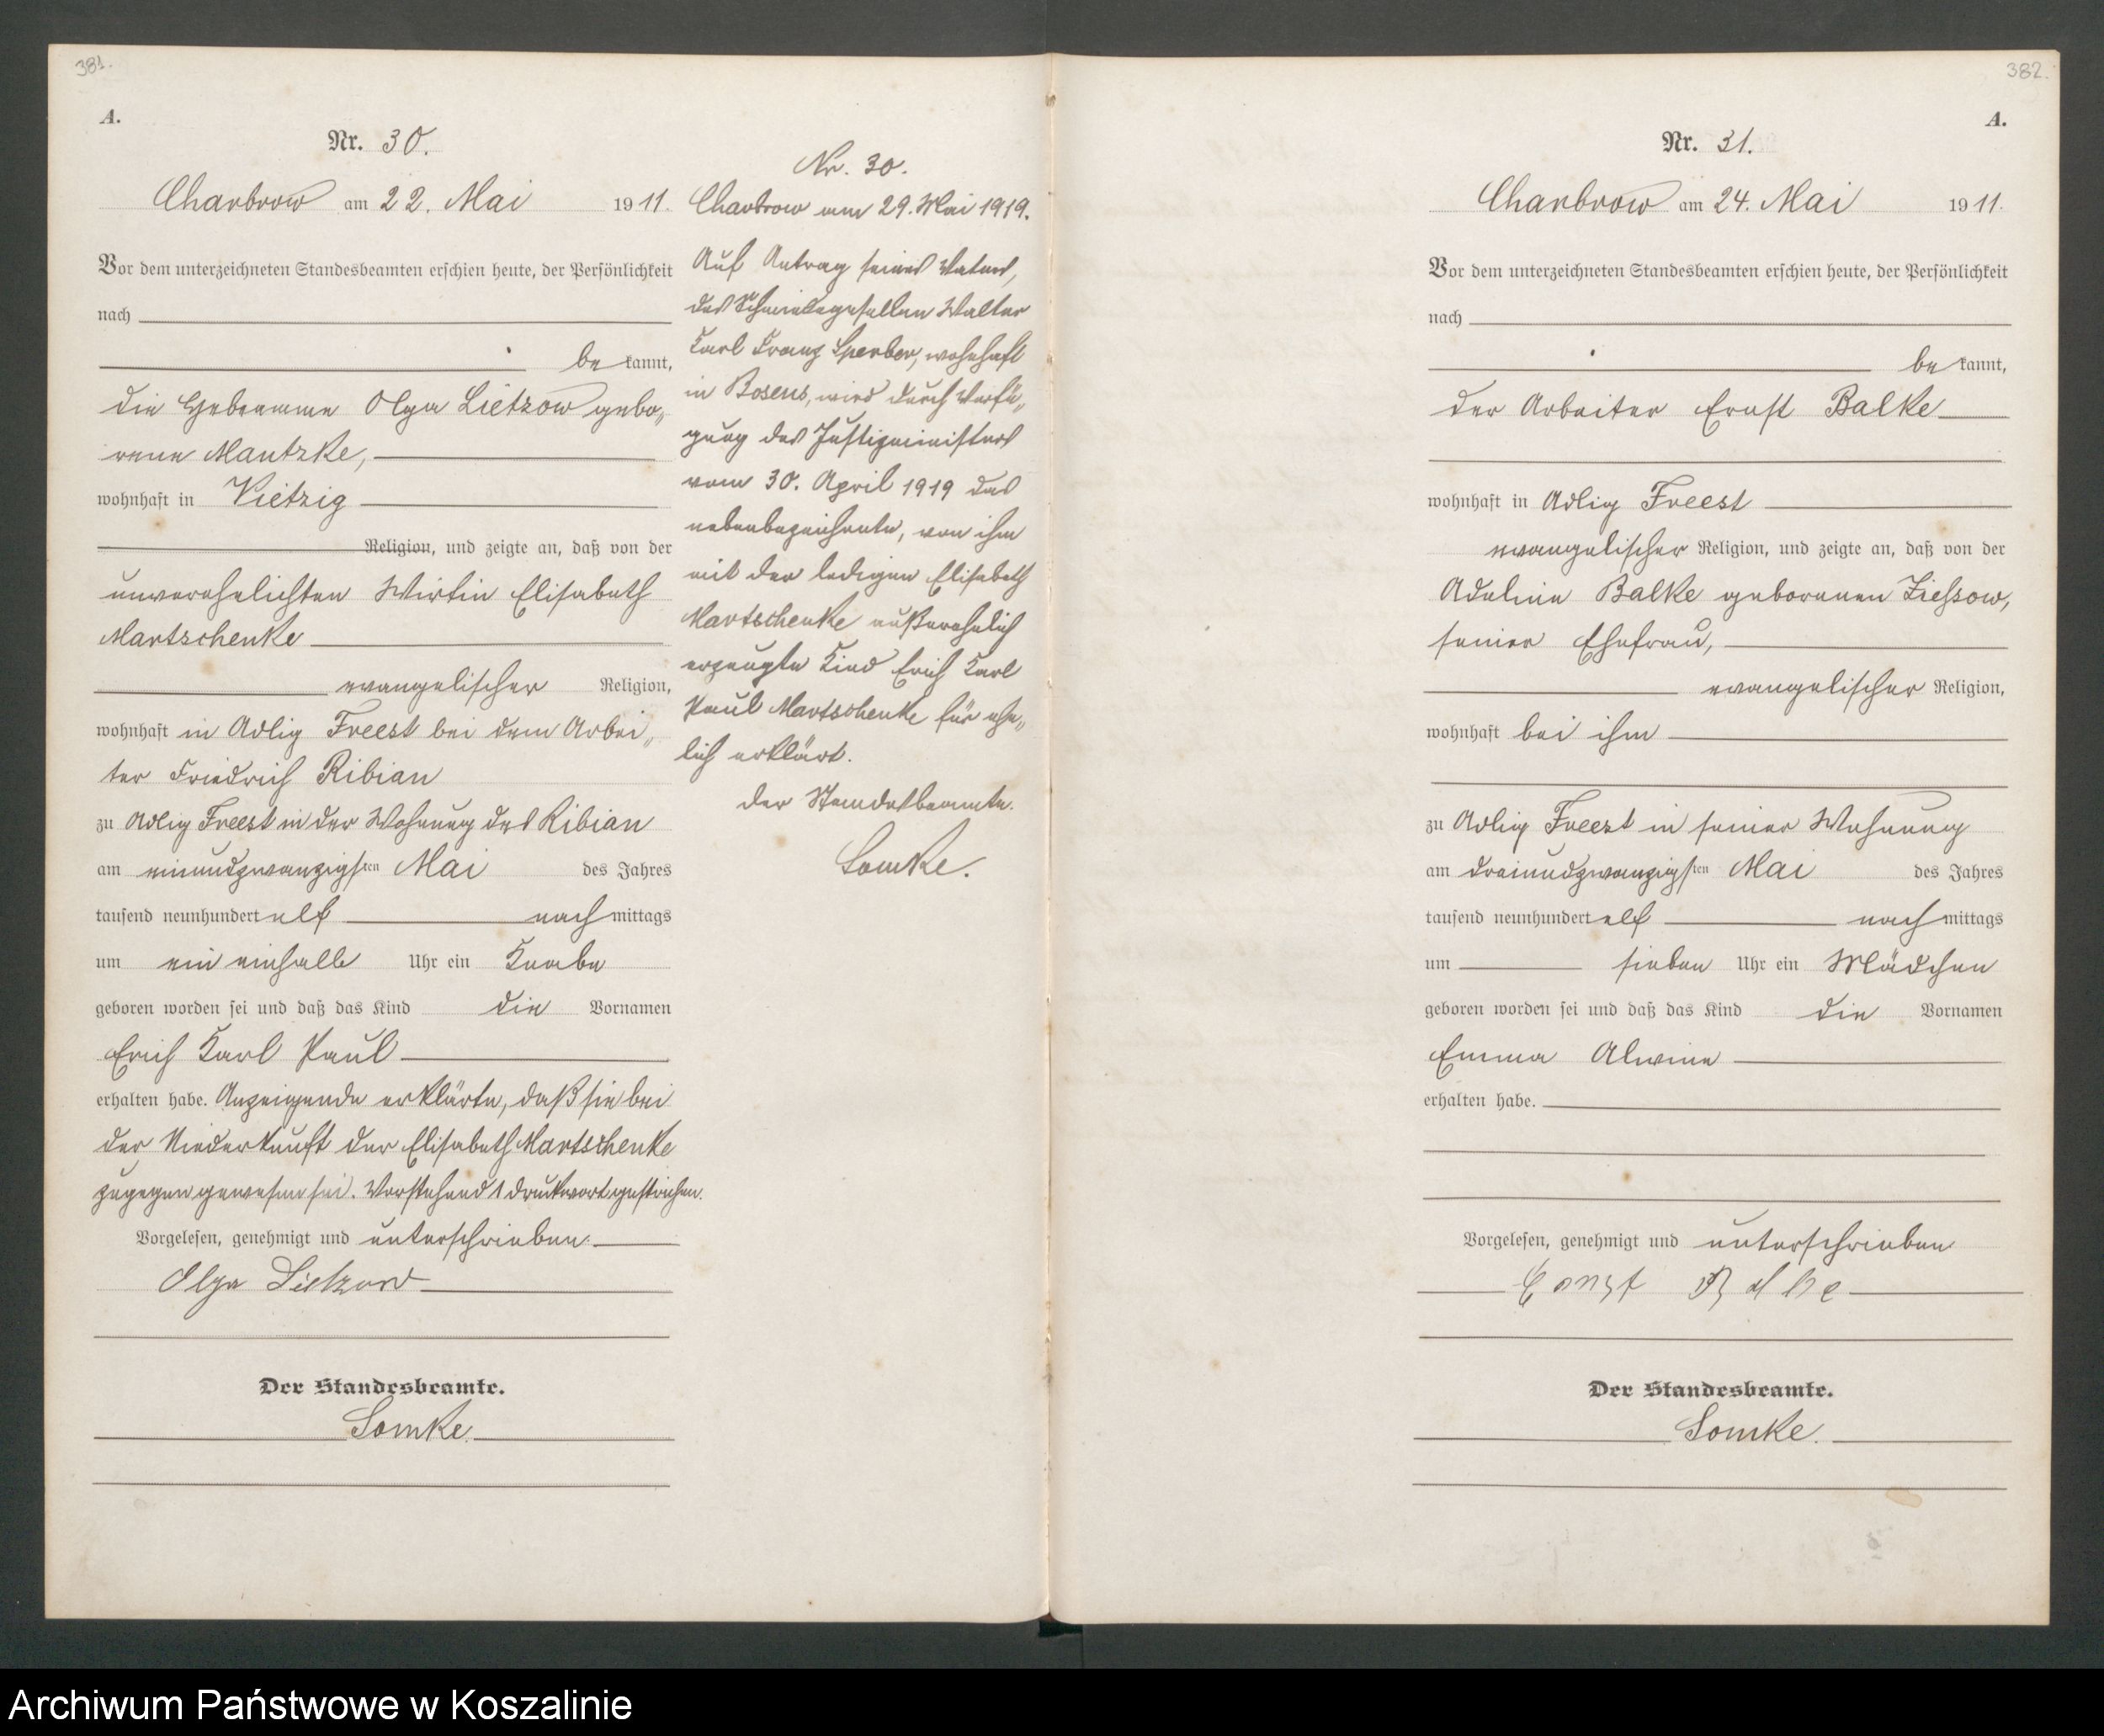 381.
A.
Nr. 30.
Charbrow am 22. Mai 1911.
Vor dem unterzeichneten Standesbeamten erschien heute, der Persönlichkeit
nach
bekannt,
die Hebeamme Olga Lietzow gebo„
rene Mantzke,
wohnhaft in Vietzig
Religion, und zeigte an, daß von der
unverehelichten Wirtin Elisabeth
Martschenke
evangelischer Religion,
wohnhaft in Adlig Freest bei dem Arbei„
ter Friedrich Ribian
zu Adlig Freest in der Wohnung des Ribian
am einundzwanzigsten Mai des Jahres
tausend neunhundert elf nachmittags
um ein einhalb Uhr ein Knabe
geboren worden sei und daß das Kind die Vornamen
Erich Karl Paul
erhalten habe. Anzeigende erklärte, daß sie bei
der Niederkunft der Elisabeth Martschenke
zugegen gewesen sei. Vorstehend 1 Druckwort gestrichen.
Vorgelesen, genehmigt und unterschrieben.
Olga Lietzow
Der Standesbeamte.
Somke.
Nr. 30.
Charbrow am 29. Mai 1919.
Auf Antrag seines Vaters,
des Schmiedegesellen Walter
Karl Franz Sperber, wohnhaft
in Bosens, wird durch Verfü„
gung des Justizministers
vom 30. April 1919 das
nebenbezeichnete, von ihm
mit der ledigen Elisabeth
Martschenke außerehelich
erzeugte Kind Erich Karl
Paul Martschenke für ehe„
lich erklärt.
Der Standesbeamte.
Somke.
382.
A.
Nr. 31.
Charbrow am 24. Mai 1911.
Vor dem unterzeichneten Standesbeamten erschien heute, der Persönlichkeit
nach
bekannt,
der Arbeiter Ernst Balke
wohnhaft in Adlig Freest
evangelischer Religion, und zeigte an, daß von der
Adeline Balke geborenen Ziessow,
seiner Ehefrau,
evangelischer Religion,
wohnhaft bei ihm
zu Adlig Freest in seiner Wohnung
am dreiundzwanzigsten Mai des Jahres
tausend neunhundert elf nachmittags
um sieben Uhr ein Mädchen
geboren worden sei und daß das Kind die Vornamen
Emma Alwine
erhalten habe.
Vorgelesen, genehmigt und unterschrieben
Ernst Balke
Der Standesbeamte.
Somke.
Archiwum Państwowe w Koszalinie